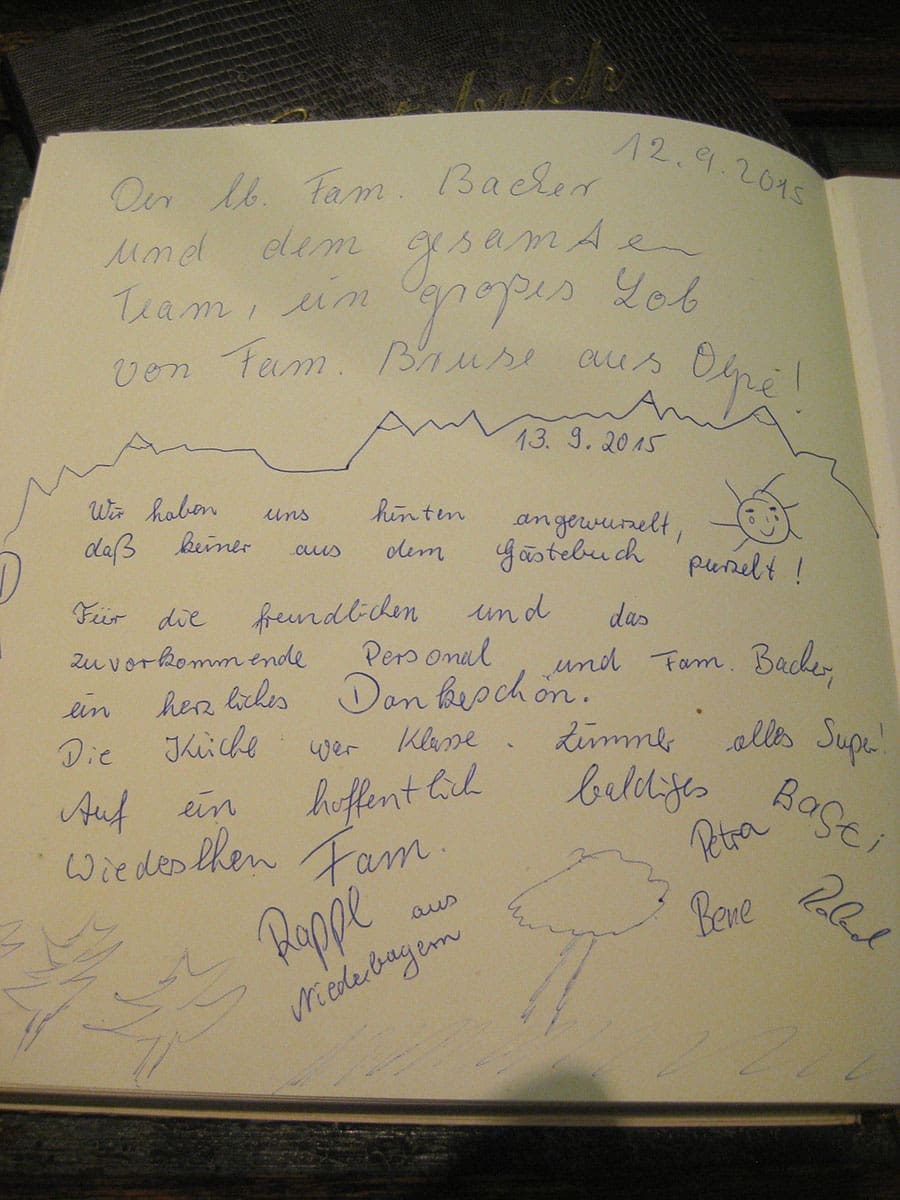 buch
12.9.2015
Der lb. Fam. Bacher
und dem gesamten
Team, ein großes Lob
von Fam. Bruse aus Olpe!
13. 9. 2015
Wir haben uns hinten angewurzelt,
daß keiner aus dem Gästebuch purzelt!
Für die freundlichen und das
zuvorkommende Personal und Fam. Bacher,
ein herzliches Dankeschön.
Die Küche war Klasse. Zimmer alles Super!
Auf ein hoffentlich baldiges
Wiedesehen Fam.
Rappl aus
Niederbayern
Petra
Bene